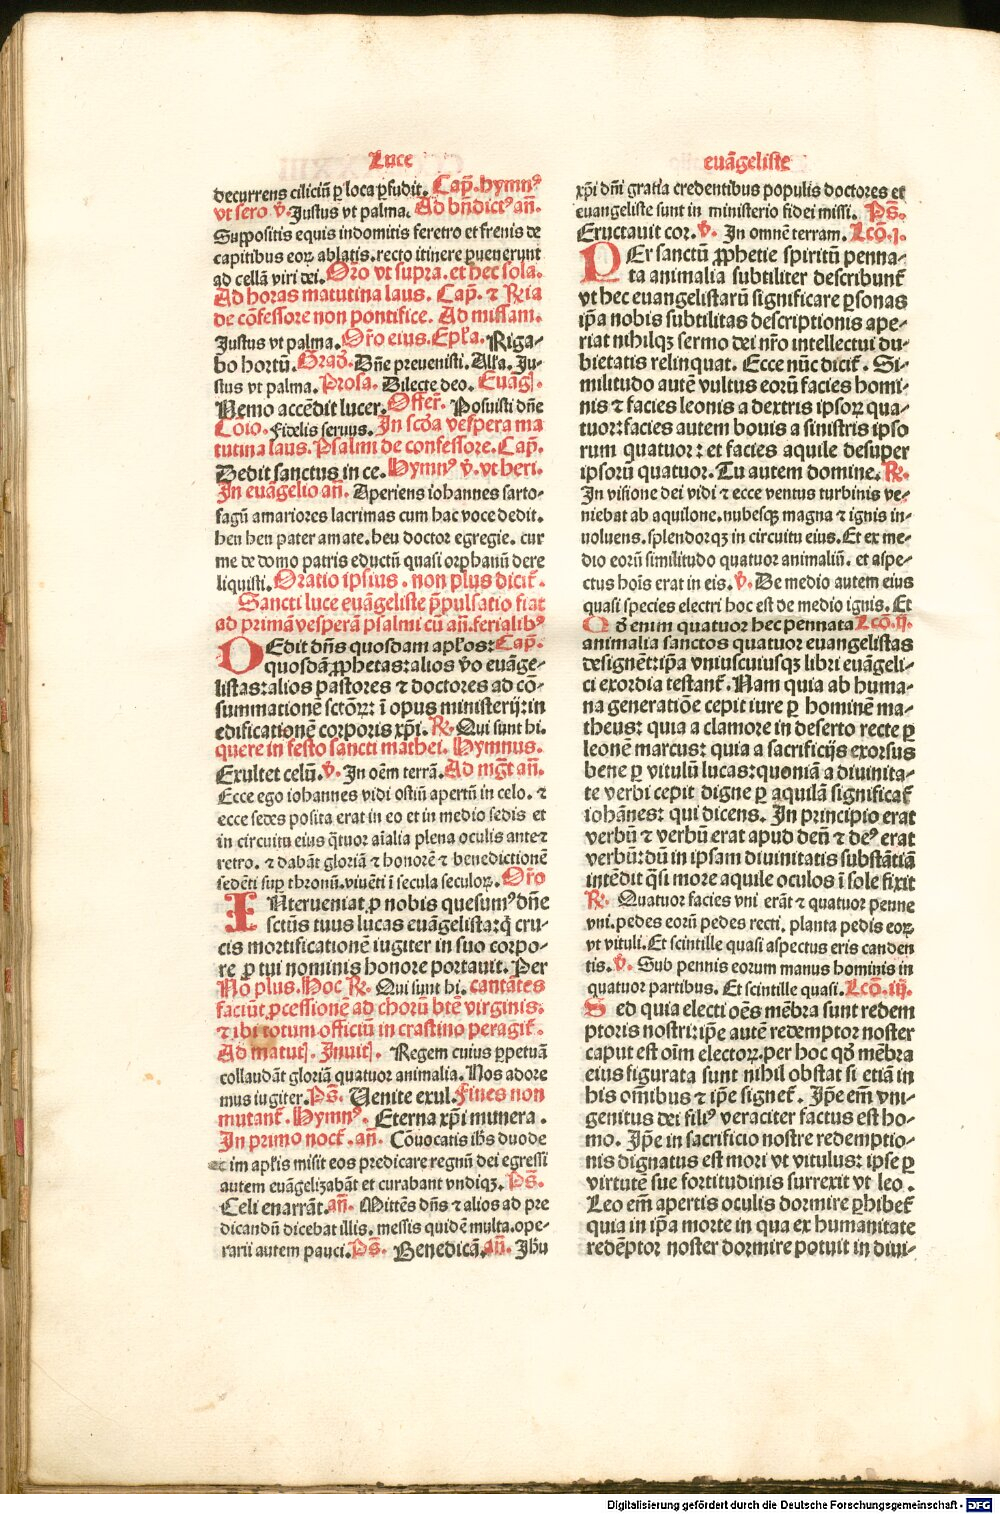 Luce
decurrens ciliciū ꝑ loca ꝑfudit. Cap̄. hymnꝰ
vt sero v̄. Justus vt palma. Ad bn̄dictꝰ an̄.
Suppositis equis indomitis feretro et frenis de
capitibus eoꝝ ablatis. recto itinere ꝑuenerunt
ad cellā viri dei. Or̄o vt supra. et hec sola.
Ad horas matutina laus. Cap̄. ⁊ R̄ia
de cōfessore non pontifice. Ad missam.
Justus vt palma. Or̄o eius. Epl̄a. Riga-
bo hortū. Grad̄. Dn̄e preuenisti. All̄a. Ju-
stus vt palma. Prosa. Dilecte deo. Euāḡ.
Nemo accēdit lucer. Offer̄. Posuisti dn̄e
Cōio. Fidelis seruus. In scd̄a vespera ma
tutina laus. Psalmi de confessore. Cap̄.
Dedit sanctus in ce. Hymnꝰ v̄. vt heri.
In euāgelio an̄. Aperiens iohannes sarto-
fagū amariores lacrimas cum hac voce dedit.
heu heu pater amate. heu doctor egregie. cur
me de domo patris eductū quasi orphanū dere
liquisti. Oratio ipsius. non plus dicit̄.
Sancti luce euāgeliste p̄pulsatio fiat
ad primā vesperā psalmi cū an̄. ferialibꝰ
DEdit dn̄s quosdam apl̄os: Cap̄.
quosdā ꝓphetas: alios v̄o euāge-
listas: alios pastores ⁊ doctores ad cō-
summationē sctōꝝ: ī opus ministerij: in
edificationē corporis xp̄i. R̄. Qui sunt hi.
quere in festo sancti mathei. Hymnus.
Exultet celū. v̄. In oēm terrā. Ad mḡt an̄.
Ecce ego iohannes vidi ostiū apertū in celo. ⁊
ecce sedes posita erat in eo et in medio sedis et
in circuitu eius q̄tuor aīalia plena oculis ante⁊
retro. ⁊ dabāt gloriā ⁊ honorē ⁊ benedictionē
sedēti suꝑ thronū. viuēti ī secula seculoꝝ. Or̄o
INterueniat ꝓ nobis quesumꝰ dn̄e
sctūs tuus lucas euāgelista: q̄ cru-
cis mortificationē iugiter in suo corpo-
re ꝓ tui nominis honore portauit. Per
Nō plus. Hoc R̄. Qui sunt hi. cantātes
faciūt ꝓcessionē ad chorū btē virginis.
⁊ ibi totum officiū in crastino peragit̄.
Ad matut̄. Inuit̄. Regem cuius ꝑpetuā
collaudāt gloriā quatuor animalia. Nos adore
mus iugiter. Ps̄. Uenite exul. Fines non
mutant̄. Hymnꝰ. Eterna xp̄i munera.
In primo noct̄. an̄. Cōuocatis ih̄s duode
cim apl̄is misit eos predicare regnū dei egressi
autem euāgelizabāt et curabant vndiqꝫ. Ps̄.
Celi enarrāt. an̄. Mittēs dn̄s ⁊ alios ad pre
dicandū dicebat illis. messis quidē multa. ope-
rarii autem pauci. Ps̄. Benedicā. an̄. Ih̄u
euāgeliste
xp̄i dn̄i gratia credentibus populis doctores et
euangeliste sunt in ministerio fidei missi. Ps̄.
Eructauit cor. v̄. In omnē terram. Lcō.j.
PEr sanctū ꝓphetie spiritū penna-
ta animalia subtiliter describunt̄
vt hec euangelistarū significare ꝑsonas
ip̄a nobis subtilitas descriptionis ape-
riat nihilqꝫ sermo dei nr̄o intellectui du-
bietatis relinquat. Ecce nūc dicit̄. Si-
militudo autē vultus eorū facies homi-
nis ⁊ facies leonis a dextris ipsoꝝ qua-
tuor: facies autem bouis a sinistris ipso
rum quatuor: et facies aquile desuper
ipsorū quatuor. Tu autem domine. R̄.
In visione dei vidi ⁊ ecce ventus turbinis ve-
niebat ab aquilone. nubesqꝫ magna ⁊ ignis in-
uoluens. splendorqꝫ in circuitu eius. Et ex me-
dio eorū similitudo quatuor animaliū. et aspe-
ctus hoīs erat in eis. v̄. De medio autem eius
quasi species electri hoc est de medio ignis. Et
Qd̄ enim quatuor hec pennata Lcō.ij.
animalia sanctos quatuor euangelistas
designēt: ip̄a vniuscuiusqꝫ libri euāgeli-
ci exordia testant̄. Nam quia ab huma-
na generatiōe cepit iure ꝑ hominē ma-
theus: quia a clamore in deserto recte ꝑ
leonē marcus: quia a sacrificijs exorsus
bene ꝑ vitulū lucas: quoniā a diuinita-
te verbi cepit digne ꝑ aquilā significat̄
iohānes: qui dicens. In principio erat
verbū ⁊ verbū erat apud deū ⁊ deꝰ erat
verbū: dū in ipsam diuinitatis substātiā
intēdit q̄si more aquile oculos ī sole fixit
R̄. Quatuor facies vni erāt ⁊ quatuor penne
vni. pedes eorū pedes recti. planta pedis eoꝝ
vt vituli. Et scintille quasi aspectus eris canden
tis. v̄. Sub pennis eorum manus hominis in
quatuor partibus. Et scintille quasi. Lcō.iij.
Sed quia electi oēs mēbra sunt redem
ptoris nostri: ip̄e autē redemptor noster
caput est oīm electoꝝ. per hoc qd̄ mēbra
eius figurata sunt nihil obstat si etiā in
his omībus ⁊ ip̄e signet̄. Ip̄e em̄ vni-
genitus dei filiꝰ veraciter factus est ho-
mo. Ip̄e in sacrificio nostre redemptio-
nis dignatus est mori vt vitulus: ipse ꝑ
virtutē sue fortitudinis surrexit vt leo.
Leo em̄ apertis oculis dormire ꝑhibet̄
quia in ip̄a morte in qua ex humanitate
redēptor noster dormire potuit in diui-
Digitalisierung gefördert durch die Deutsche Forschungsgemeinschaft - DFG